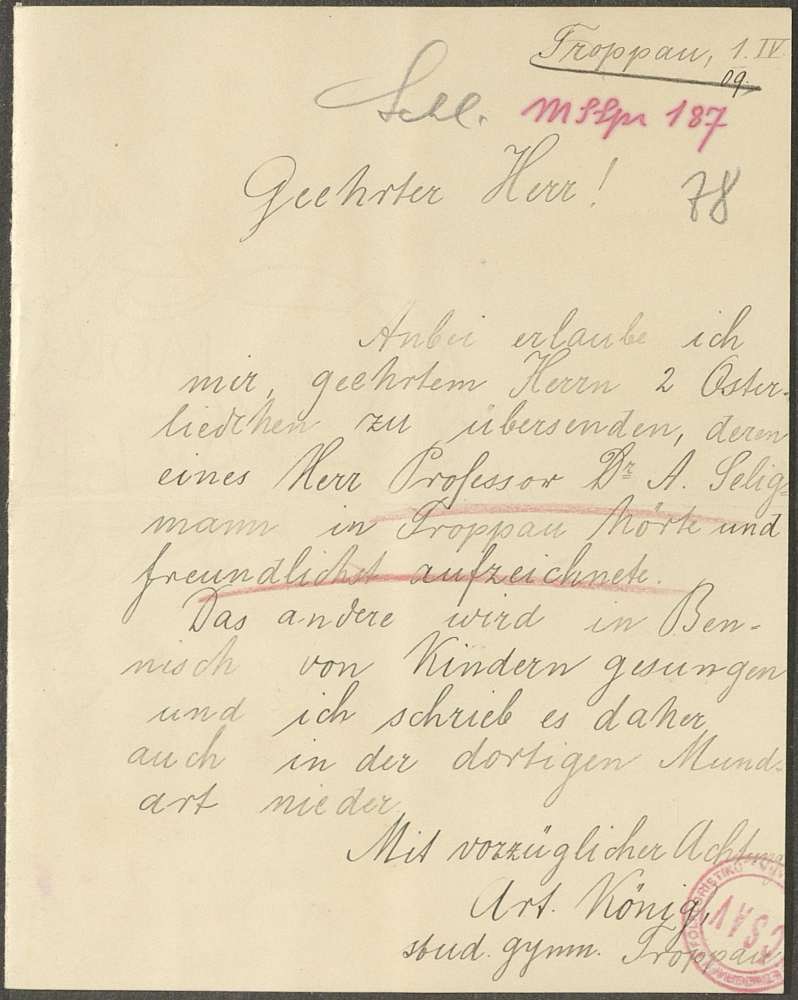 Troppau, 1. IV
09.
Schl. MSLpr 187
Geehrter Herr! 78
Anbei erlaube ich
mir, geehrtem Herrn 2 Oster-
liedchen zu übersenden, deren
eines Herr Professor Dr A. Selig-
mann in Troppau hörte und
freundlichst aufzeichnete.
Das andere wird in Ben-
nisch von Kindern gesungen
und ich schrieb es daher
auch in der dortigen Mund-
art nieder.
Mit vorzüglicher Achtung
Art. König,
stud. gymn. Troppau
ČSAV